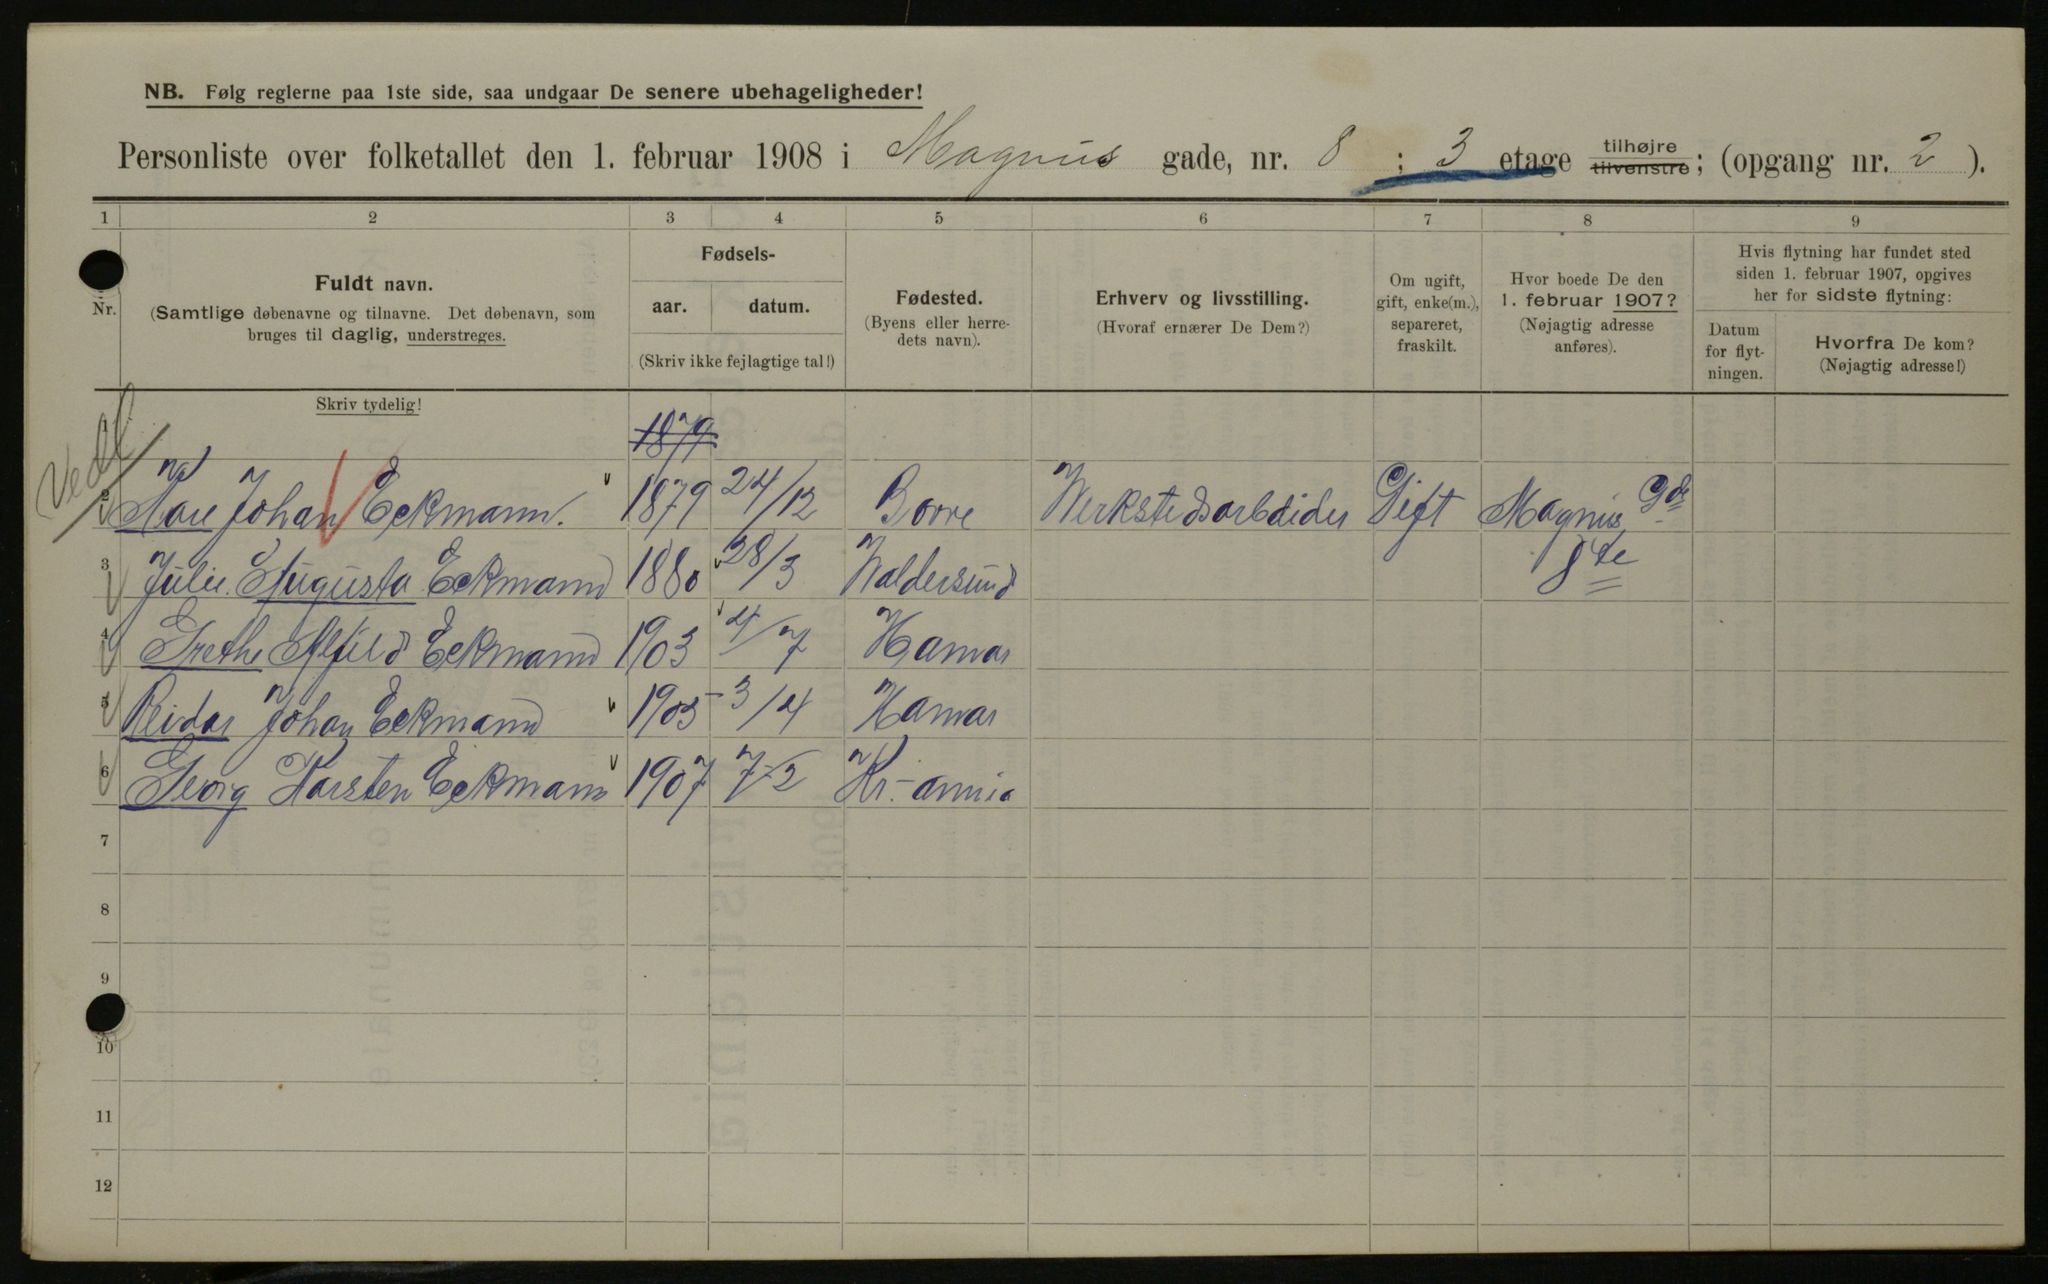 NB. Følg reglerne paa 1ste side, saa undgaar De senere ubehageligheder!
Personliste over folketallet den 1. februar 1908 i Magnus gade, nr. 8 ; 3 etage tilhøjre tilvenstre; (opgang nr. 2 ).
1 2 3 4 5 6 7 8 9
Nr.
Fuldt navn.
(Samtlige døbenavne og tilnavne. Det døbenavn, som
bruges til daglig, understreges.
Skriv tydelig!
Fødsels-
aar. datum.
(Skriv ikke fejlagtige tal!)
Fødested.
(Byens eller herre-
dets navn).
Erhverv og livsstilling.
(Hvoraf ernærer De Dem?)
Om ugift,
gift, enke(m.),
separeret,
fraskilt.
Hvor boede De den
1. februar 1907?
(Nøjagtig adresse
anføres).
Hvis flytning har fundet sted
siden 1. februar 1907, opgives
her for sidste flytning:
Datum
for flyt-
ningen.
Hvorfra De kom?
(Nøjagtig adresse!)
1879
2 Johan Eckmann. 1879 24/12 Borre Werkstedsarbeider Gift Magnus Gde
3 Julie Augusta Eckmann 1880 28/3 Waldersund 8de
4 Grethe Alfild Eckmann 1903 4/7 Hamar
5 Reidar Johan Eckmann 1905 3/4 Hamar
6 Georg Karsten Eckmann 1907 7-2 Kr.-annia
7
8
9
10
11
12